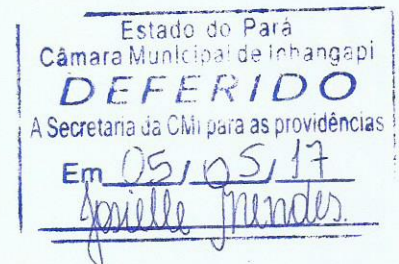 Estado do Pará
Câmara Municipal de Inhangapi
DEFERIDO
A Secretaria da CMI para as providências
Em 05/05/17
Josielle Mendes.